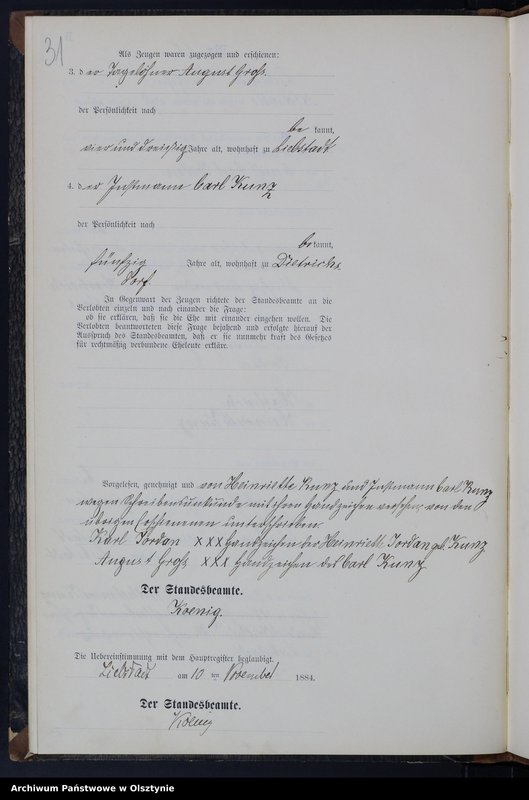 31
Als Zeugen waren zugezogen und erschienen:
3. der Tagelöhner August Groß
der Persönlichkeit nach
be kannt,
vier und dreißig Jahre alt, wohnhaft zu Liebstadt
4. der Instmann Carl Kunz
der Persönlichkeit nach
bekannt,
fünfzig Jahre alt, wohnhaft zu Dietrichs
dorf.
In Gegenwart der Zeugen richtete der Standesbeamte an die
Verlobten einzeln und nach einander die Frage:
ob sie erklären, daß sie die Ehe mit einander eingehen wollen. Die
Verlobten beantworteten diese Frage bejahend und erfolgte hierauf der
Ausspruch des Standesbeamten, daß er sie nunmehr kraft des Gesetzes
für rechtmäßig verbundene Eheleute erkläre.
Vorgelesen, genehmigt und von Heinriette Kunz und Instmann Carl Kunz
wegen Schreibensunkunde mit ihren Handzeichen versehen, von den
übrigen Erschienenen unterschrieben.
Karl Jordan XXX Handzeichen der Heinriette Jordan geb. Kunz
August Groß XXX Handzeichen des Carl Kunz
Der Standesbeamte.
Koenig.
Die Uebereinstimmung mit dem Hauptregister beglaubigt.
Liebstadt am 10 ten November 1884.
Der Standesbeamte.
Koenig
Archiwum Państwowe w Olsztynie